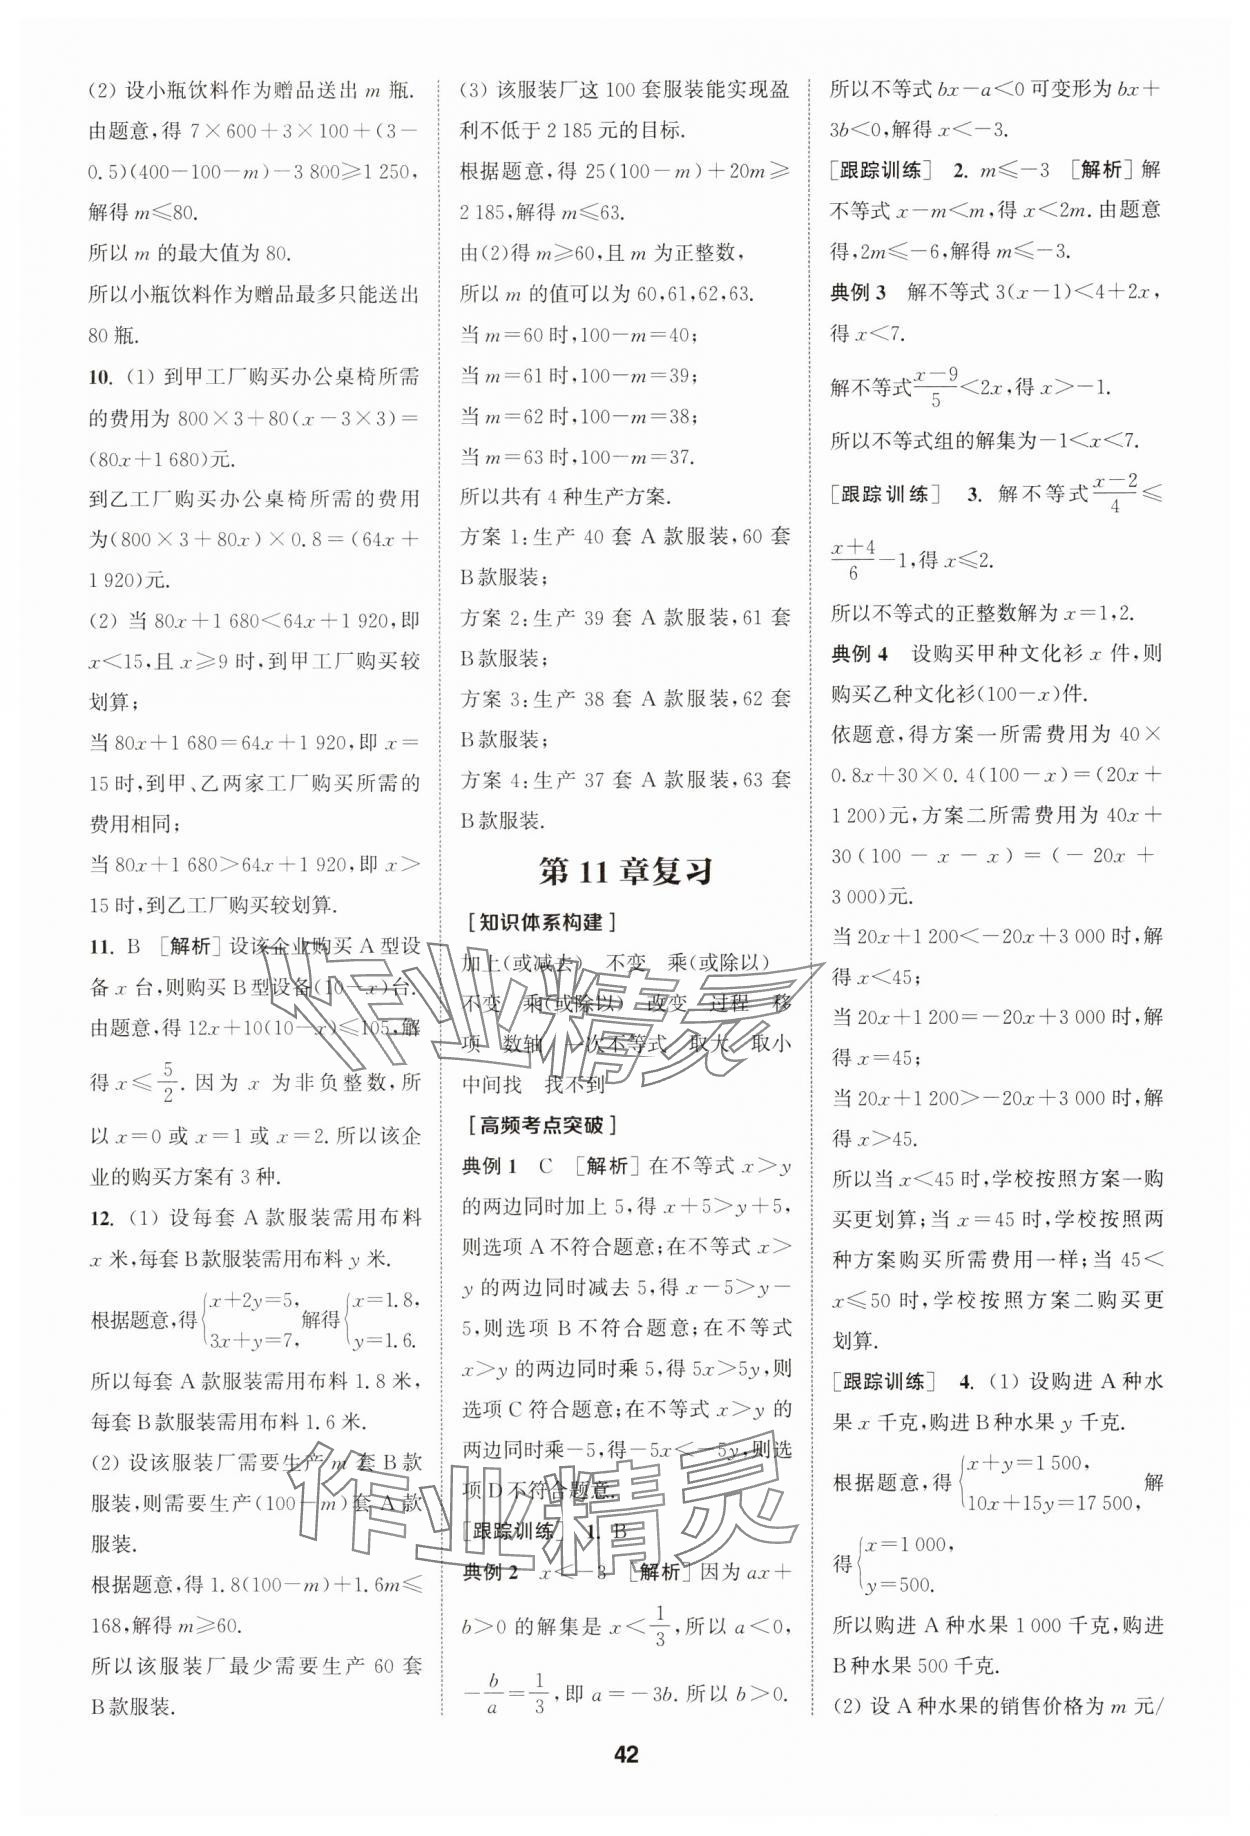 (2) 设小瓶饮料作为赠品送出 m 瓶.
由题意,得 7×600+3×100+(3-
0.5)(400-100-m)-3 800≥1 250,
解得 m≤80.
所以 m 的最大值为 80.
所以小瓶饮料作为赠品最多只能送出
80 瓶.
10. (1) 到甲工厂购买办公桌椅所需
的费用为 800×3+80(x-3×3)=
(80x+1 680)元.
到乙工厂购买办公桌椅所需的费用
为(800×3+80x)×0.8=(64x+
1 920)元.
(2) 当 80x+1 680<64x+1 920,即
x<15,且 x≥9 时,到甲工厂购买较
划算;
当 80x+1 680=64x+1 920,即 x=
15 时,到甲、乙两家工厂购买所需的
费用相同;
当 80x+1 680>64x+1 920,即 x>
15 时,到乙工厂购买较划算.
11. B [解析]设该企业购买 A 型设
备 x 台,则购买 B 型设备(10-x)台.
由题意,得 12x+10(10-x)≤105,解
得 x≤5/2.因为 x 为非负整数,所
以 x=0 或 x=1 或 x=2.所以该企
业的购买方案有 3 种.
12. (1) 设每套 A 款服装需用布料
x 米,每套 B 款服装需用布料 y 米.
根据题意,得{x+2y=5, 3x+y=7,解得{x=1.8, y=1.6.
所以每套 A 款服装需用布料 1.8 米,
每套 B 款服装需用布料 1.6 米.
(2) 设该服装厂需要生产 m 套 B 款
服装,则需要生产(100-m)套 A 款
服装.
根据题意,得 1.8(100-m)+1.6m≤
168,解得 m≥60.
所以该服装厂最少需要生产 60 套
B 款服装.
(3) 该服装厂这 100 套服装能实现盈
利不低于 2 185 元的目标.
根据题意,得 25(100-m)+20m≥
2 185,解得 m≤63.
由(2)得 m≥60,且 m 为正整数,
所以 m 的值可以为 60,61,62,63.
当 m=60 时,100-m=40;
当 m=61 时,100-m=39;
当 m=62 时,100-m=38;
当 m=63 时,100-m=37.
所以共有 4 种生产方案.
方案 1:生产 40 套 A 款服装,60 套
B 款服装;
方案 2:生产 39 套 A 款服装,61 套
B 款服装;
方案 3:生产 38 套 A 款服装,62 套
B 款服装;
方案 4:生产 37 套 A 款服装,63 套
B 款服装.
第 11 章复习
[知识体系构建]
加上(或减去) 不变 乘(或除以)
不变 乘(或除以) 改变 过程 移
项 数轴 一次不等式 取大 取小
中间找 找不到
[高频考点突破]
典例 1 C [解析]在不等式 x>y
的两边同时加上 5,得 x+5>y+5,
则选项 A 不符合题意;在不等式 x>
y 的两边同时减去 5,得 x-5>y-
5,则选项 B 不符合题意;在不等式
x>y 的两边同时乘 5,得 5x>5y,则
选项 C 符合题意;在不等式 x>y 的
两边同时乘-5,得-5x<-5y,则选
项 D 不符合题意.
[跟踪训练] 1. B
典例 2 x<-3 [解析]因为 ax+
b>0 的解集是 x<1/3,所以 a<0,
-b/a=1/3,即 a=-3b.所以 b>0.
所以不等式 bx-a<0 可变形为 bx+
3b<0,解得 x<-3.
[跟踪训练] 2. m≤-3 [解析]解
不等式 x-m<m,得 x<2m.由题意
得,2m≤-6,解得 m≤-3.
典例 3 解不等式 3(x-1)<4+2x,
得 x<7.
解不等式 (x-9)/5<2x,得 x>-1.
所以不等式组的解集为-1<x<7.
[跟踪训练] 3. 解不等式 (x-2)/4≤
(x+4)/6-1,得 x≤2.
所以不等式的正整数解为 x=1,2.
典例 4 设购买甲种文化衫 x 件,则
购买乙种文化衫(100-x)件.
依题意,得方案一所需费用为 40×
0.8x+30×0.4(100-x)=(20x+
1 200)元,方案二所需费用为 40x+
30(100-x-x)=(-20x+
3 000)元.
当 20x+1 200<-20x+3 000 时,解
得 x<45;
当 20x+1 200=-20x+3 000 时,解
得 x=45;
当 20x+1 200>-20x+3 000 时,解
得 x>45.
所以当 x<45 时,学校按照方案一购
买更划算;当 x=45 时,学校按照两
种方案购买所需费用一样;当 45<
x≤50 时,学校按照方案二购买更
划算.
[跟踪训练] 4. (1) 设购进 A 种水
果 x 千克,购进 B 种水果 y 千克.
根据题意,得{x+y=1 500, 10x+15y=17 500,解
得{x=1 000, y=500.
所以购进 A 种水果 1 000 千克,购进
B 种水果 500 千克.
(2) 设 A 种水果的销售价格为 m 元/
42
作业精灵
作业精灵